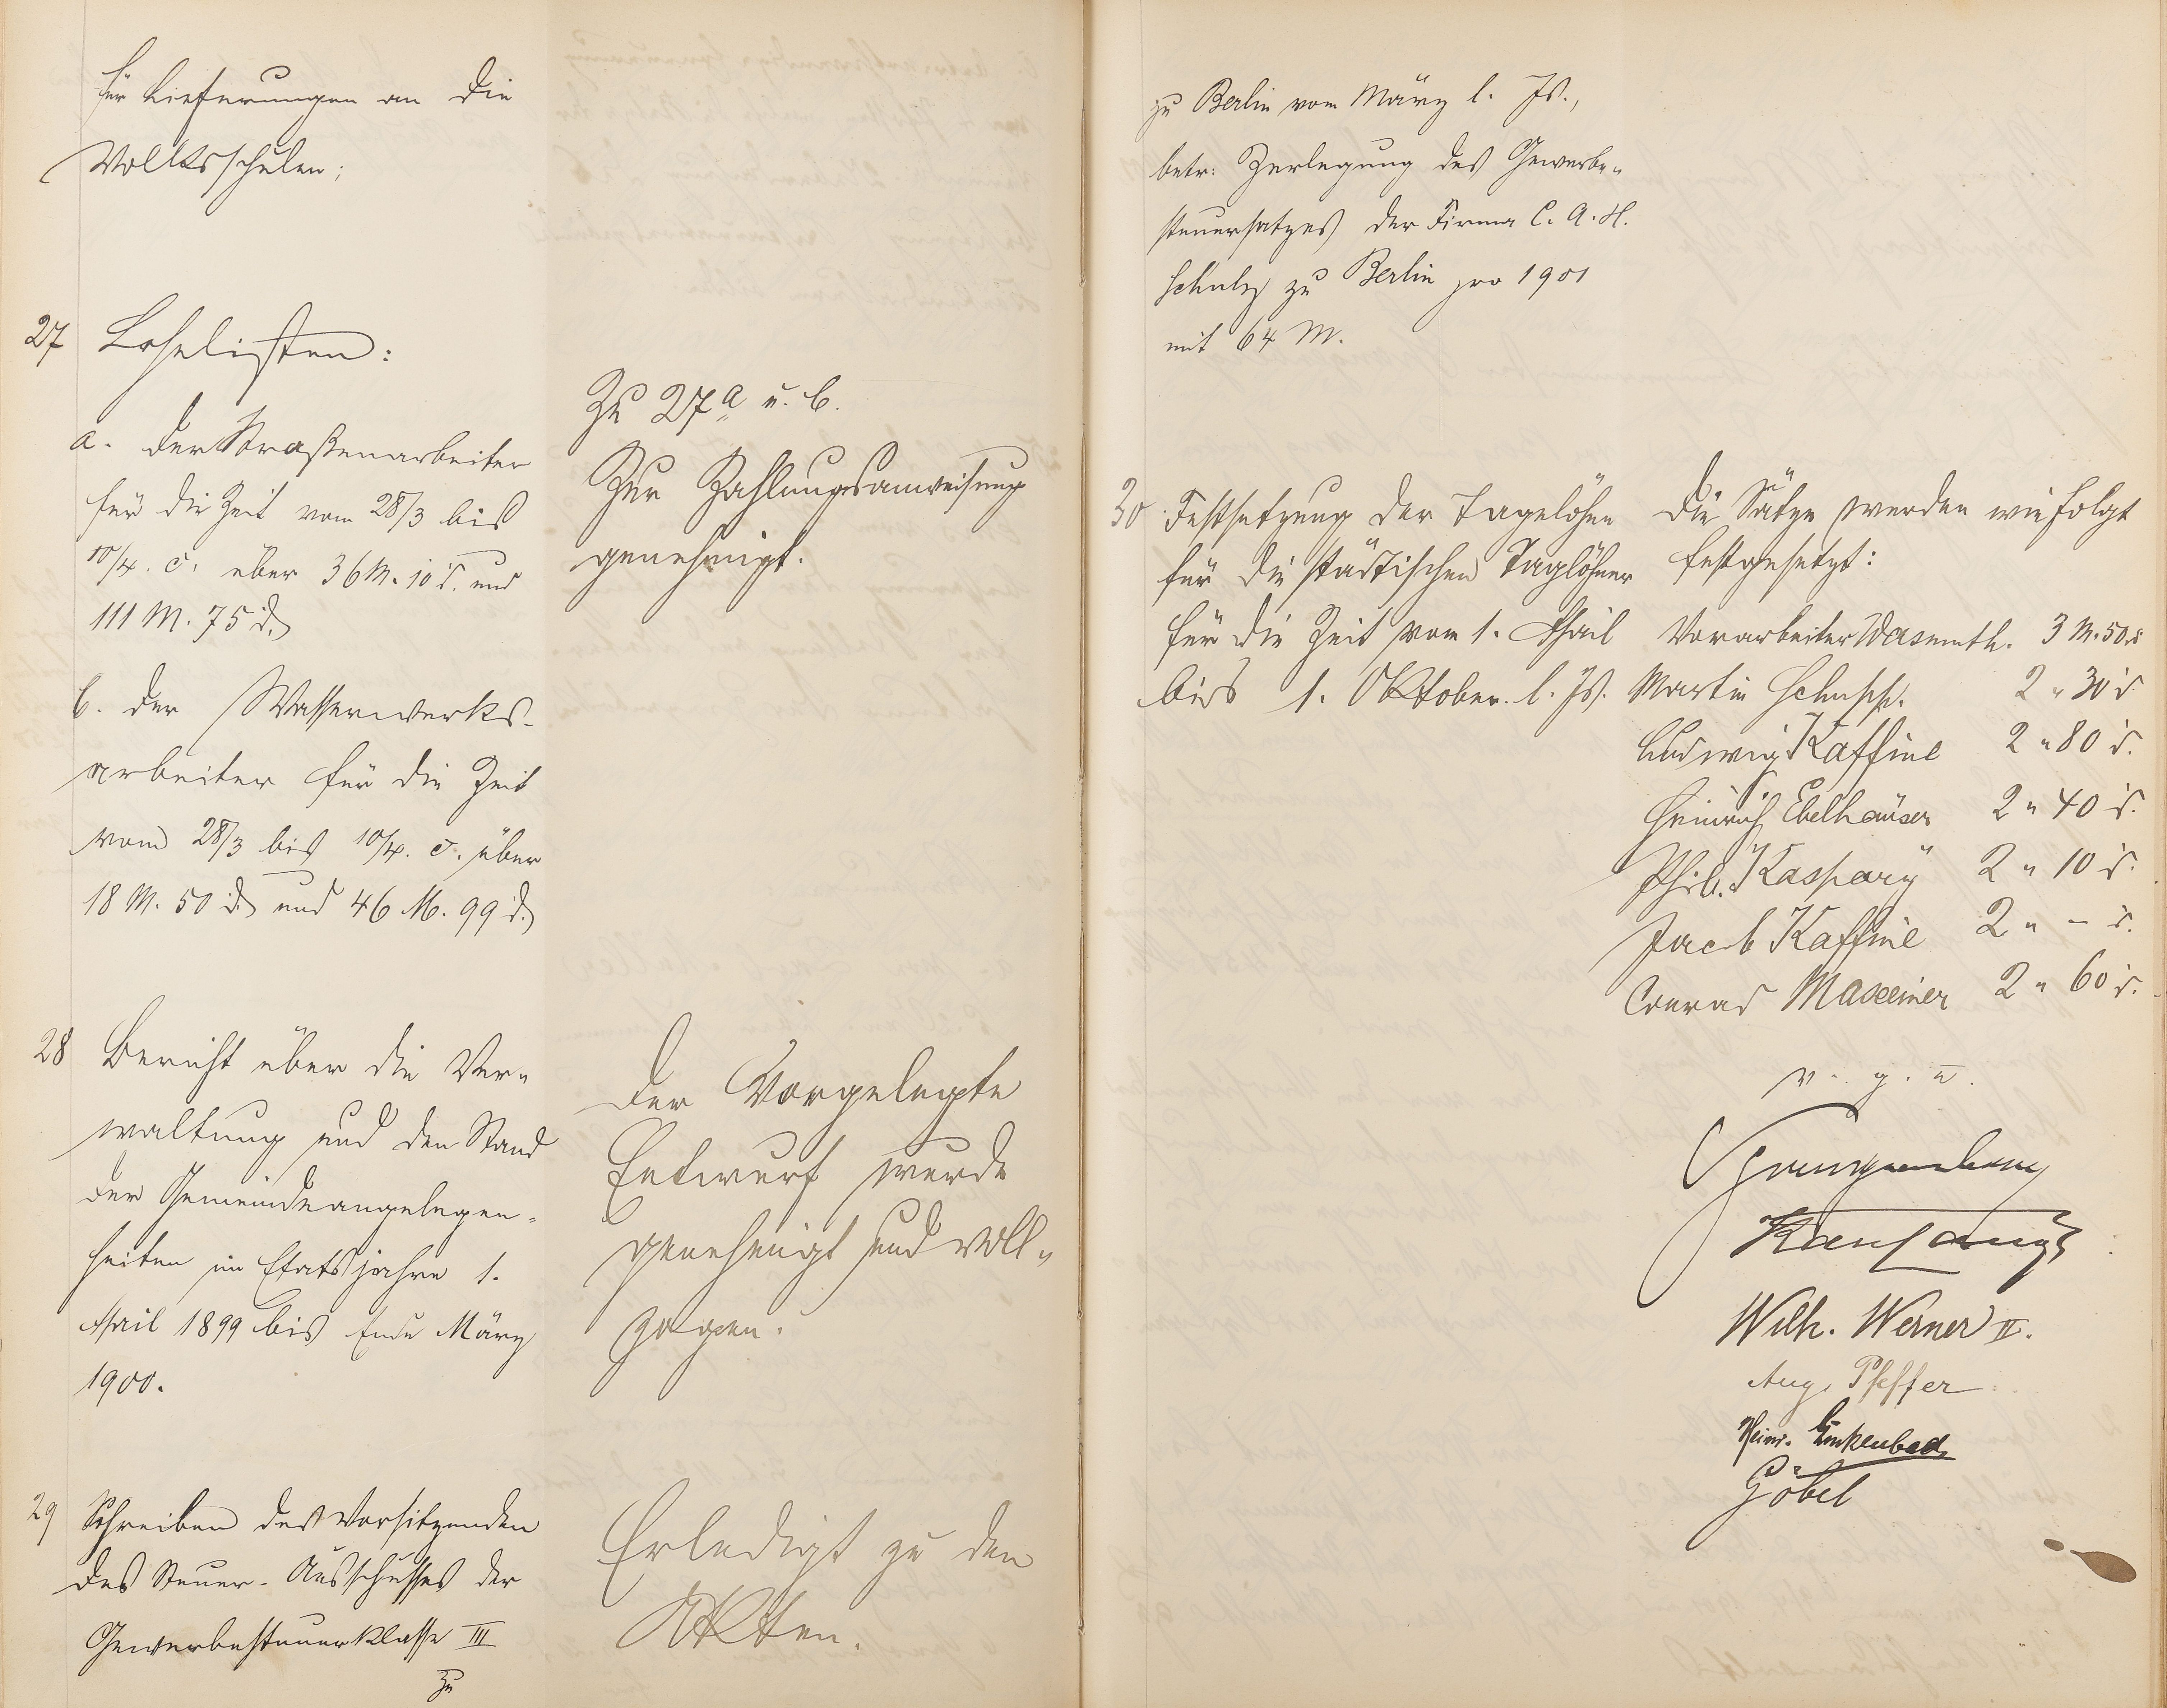 für Lieferungen an die
Volksschulen;
27 Lohnlisten:
a. der Straßenarbeiter
für die Zeit vom 28/3 bis
10/4. c. über 36 M. 10 d. und
111 M. 75 d.
b. der Wasserwerks-
arbeiter für die Zeit
vom 28/3 bis 10/4. c. über
18 M. 50 d. und 46 M. 99 d.
Zu 27 a u. b.
Zur Zahlungsanweisung
genehmigt.
28 Bericht über die Ver-
waltung und den Stand
der Gemeindeangelegen-
heiten im Etatsjahre 1.
April 1899 bis Ende März
1900.
Der Vorgelegte
Entwurf wurde
genehmigt und voll-
zogen.
29 Schreiben des Vorsitzenden
des Steuer-Ausschusses der
Gewerbesteuerklasse III
zu
Erledigt zu den
Akten.
zu Berlin vom März l. Js.,
betr. Zerlegung des Gewerbe-
steuersatzes der Firma C. A. H.
Schulz zu Berlin pro 1901
mit 64 M.
30 Festsetzung der Tagelöhne
für die städtischen Taglöhner
für die Zeit vom 1. April
bis 1. Oktober l. Js.
Die Sätze werden wie folgt
festgesetzt:
Vorarbeiter Wasmuth. 3 M. 50 d
Martin Schupp. 2 " 30 d
Ludwig Kaffine 2 " 80 d.
Heinrich Ebelhäuser 2 " 40 d.
Phil. Kaspary 2 " 10 d.
Jacob Kaffine 2 " – d.
Conrad 2 " 60 d.
v. g. u.
Wilh. Werner II.
Aug. Pfeffer
Heinr.
Göbel